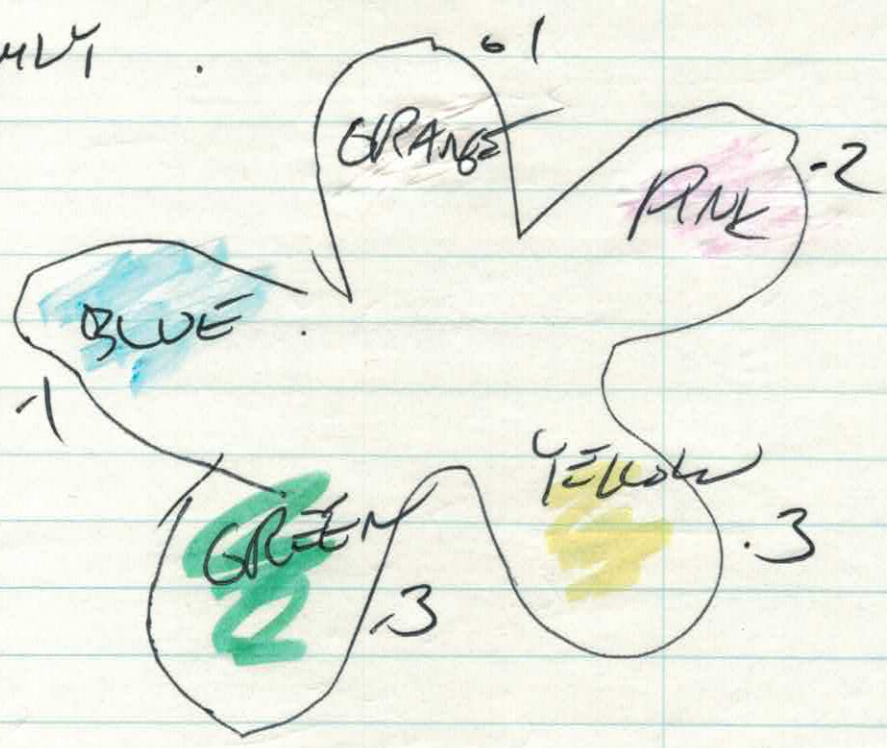 .1
ORANGE
PINK
.2
BLUE
.1
YELLOW
GREEN
.3
.3